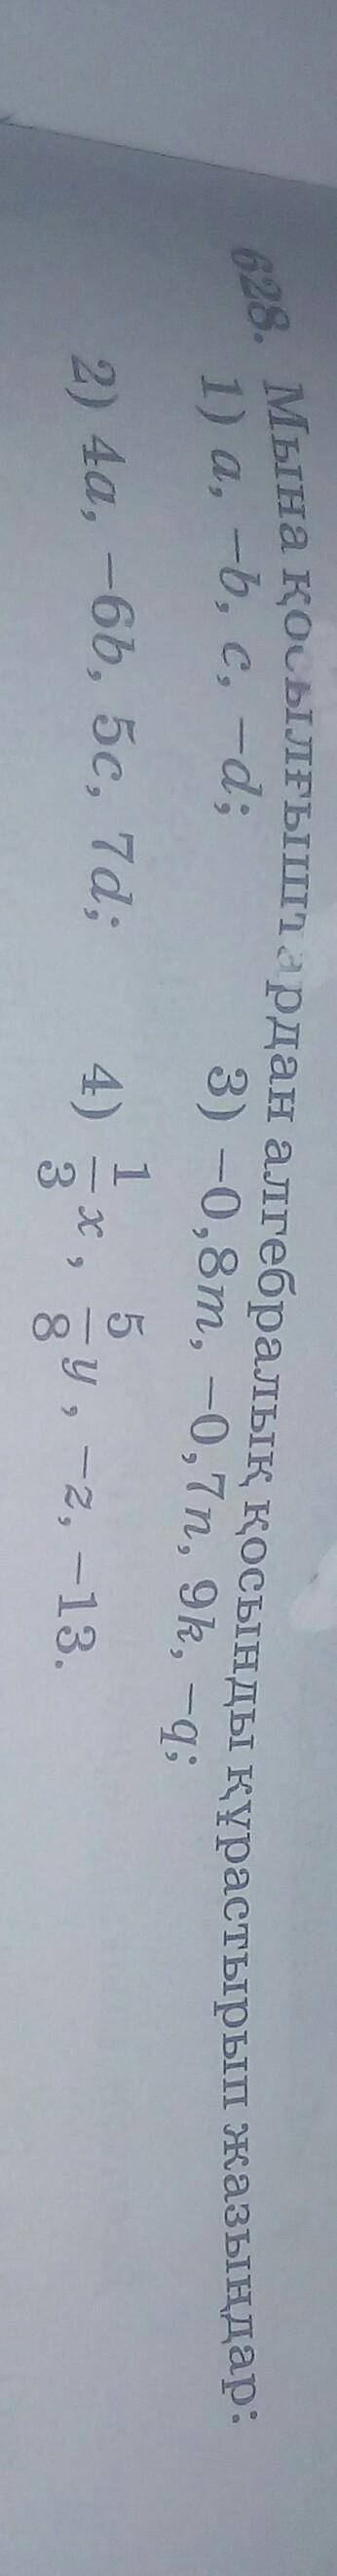 628. Мына қосылғыштардан алгебралық қосынды құрастырып жазыңдар:
1) a, −b, c, −d; 3) −0,8m, −0,7n, 9k, −q;
2) 4a, −6b, 5c, 7d; 4) 1/3 x, 5/8 y, −z, −13.